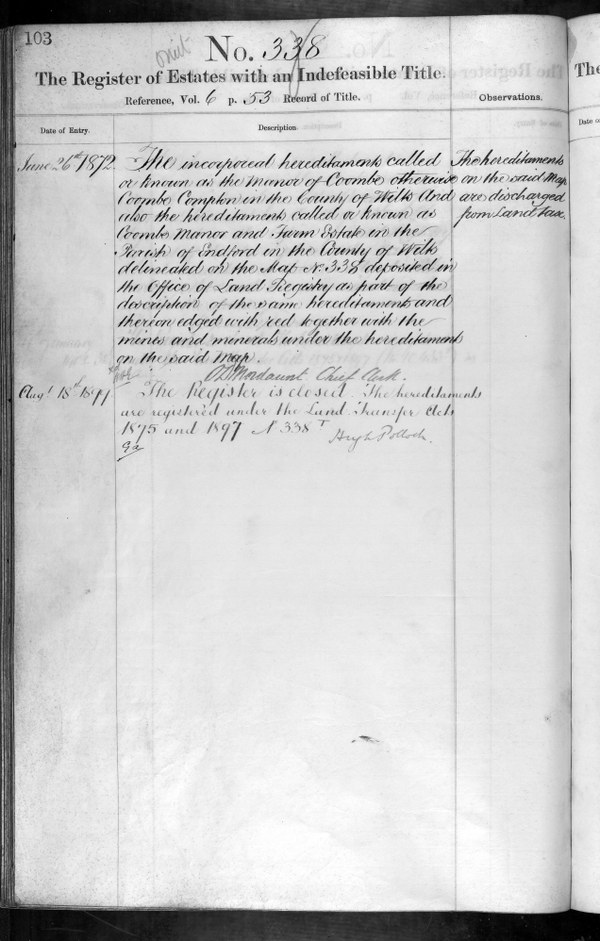 103
omit
No. 338
The Register of Estates with an Indefeasible Title.
Reference, Vol. 6 p. 53 Record of Title.
Observations.
Date of Entry.
Description.
June 26th 1872.
The incorporeal hereditaments called
or known as the Manor of Coombe otherwise
Coombe Compton in the County of Wilts And
also the hereditaments called or known as
Coombe Manor and Farm Estate in the
Parish of Endford in the County of Wilts
delineated on the Map No. 338 deposited in
the Office of Land Registry as part of the
description of the same hereditaments and
thereon edged with red together with the
mines and minerals under the hereditaments
on the said Map.
Mordaunt Chief Clerk.
The hereditaments
on the said Map
are discharged
from Land tax.
Augt 18th 1899
The Register is closed. The hereditaments
are registered under the Land Transfer Acts
1875 and 1897 No 338 T
Hugh Pollock.
The
Date